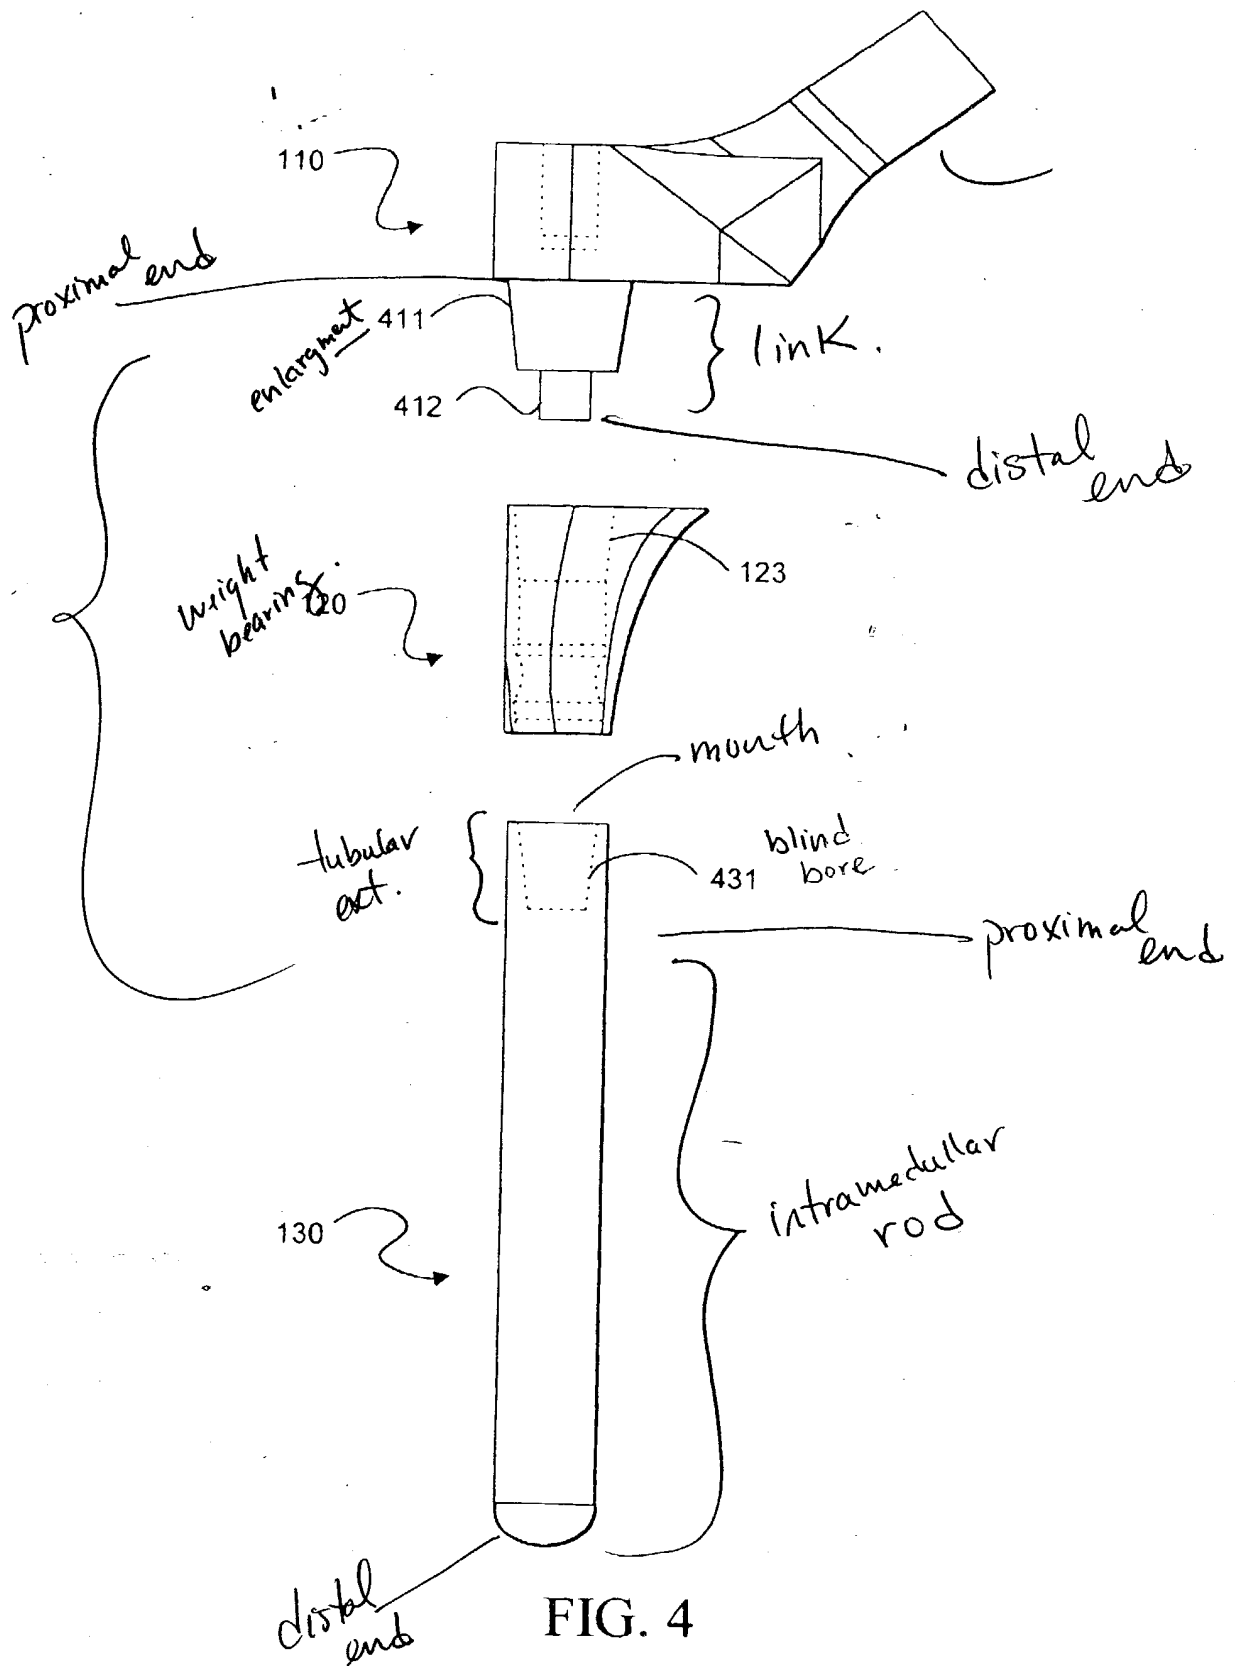 110
proximal
end
enlargment
411
link.
412
distal
end
123
weight
bearing.
120
mouth
tubular
ext.
431
blind
bore
proximal
end
130
intramedullar
rod
distal
end
FIG. 4